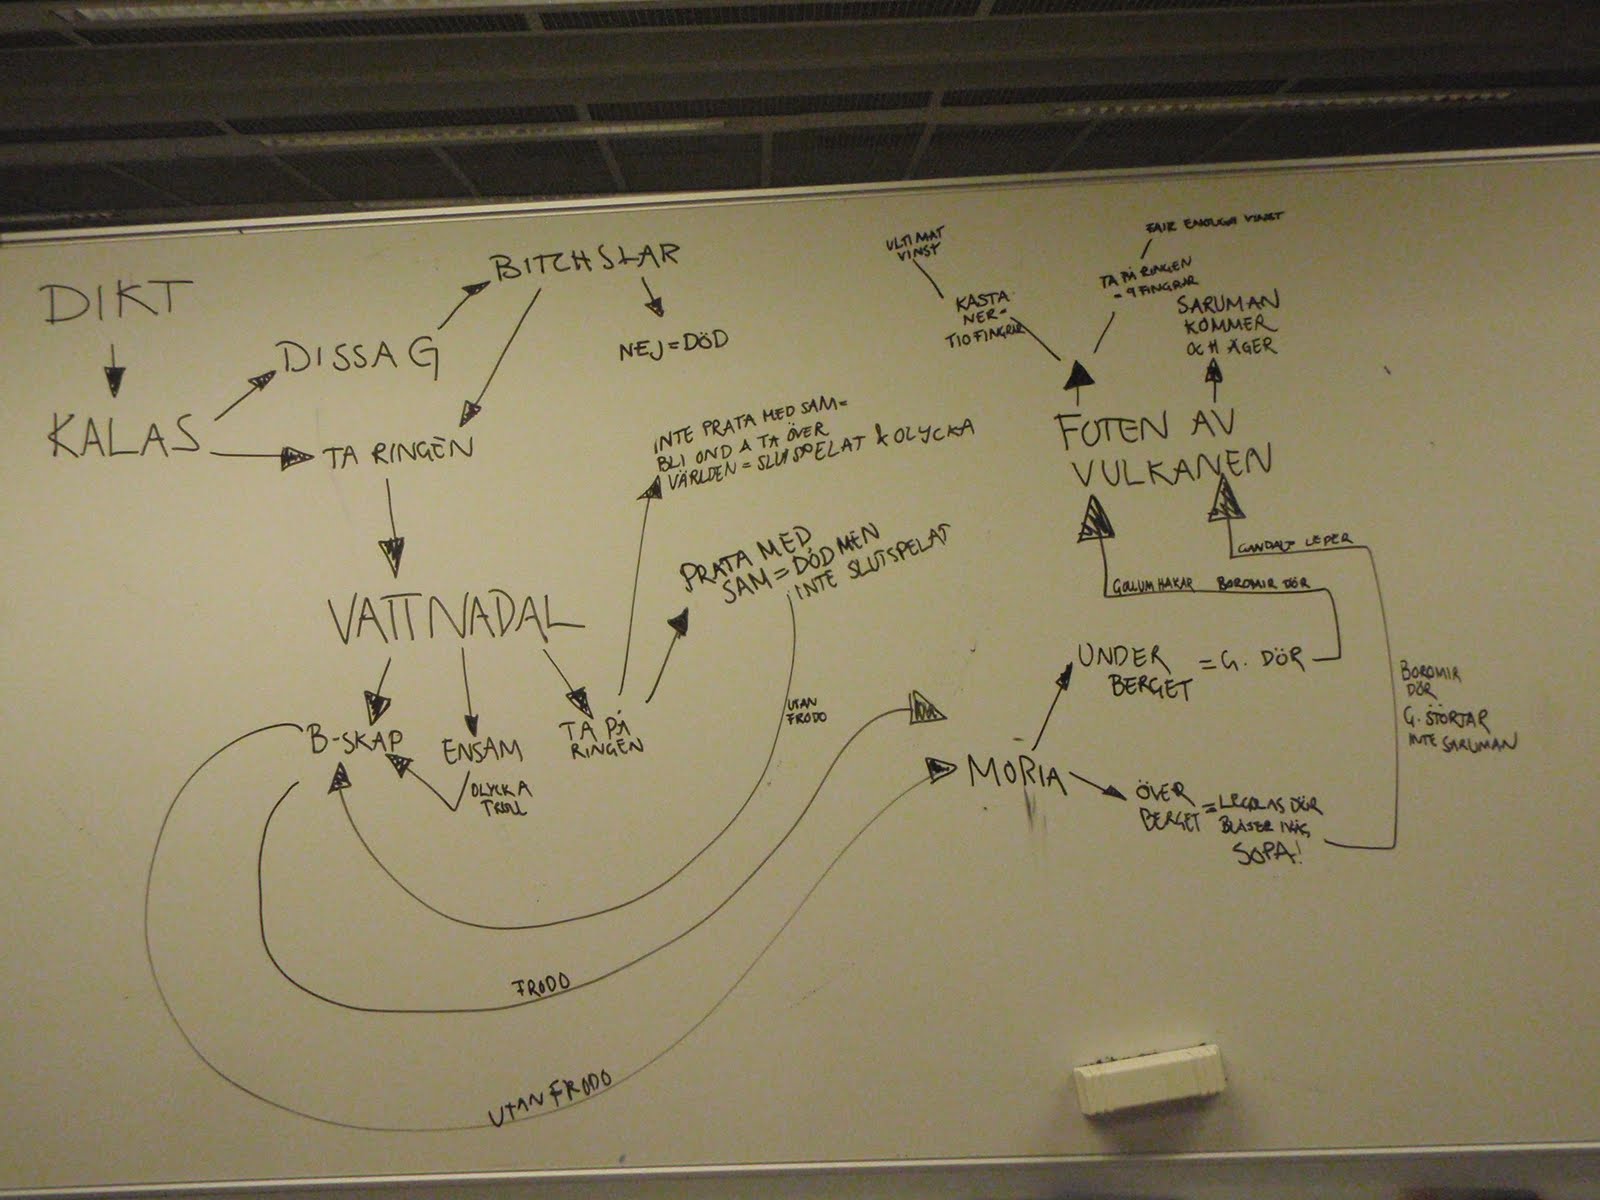 DIKT
KALAS
DISSA G
BITCHSLAR
NEJ=DÖD
TA RINGEN
VATTNADAL
B-SKAP
ENSAM
OLYCKA
TROLL
TA PÅ
RINGEN
INTE PRATA MED SAM=
BLI OND & TA ÖVER
VÄRLDEN = SLUTSPELAT & OLYCKA
PRATA MED
SAM = DÖD MEN
INTE SLUTSPELAT
UTAN
FRODO
FRODO
UTAN FRODO
MORIA
UNDER
BERGET = G. DÖR
ÖVER
BERGET = LEGOLAS DÖR
BLÅSER IVÄG
SOPA!
GOLLUM HAKAR BOROMIR DÖR
GANDALF LEDER
BOROMIR
DÖR
G. STÖRTAR
INTE SARUMAN
FOTEN AV
VULKANEN
KASTA
NER =
TIO FINGRAR
ULTIMAT
VINST
TA PÅ RINGEN
= 9 FINGRAR
FAIR ENOUGH VINST
SARUMAN
KOMMER
OCH ÄGER